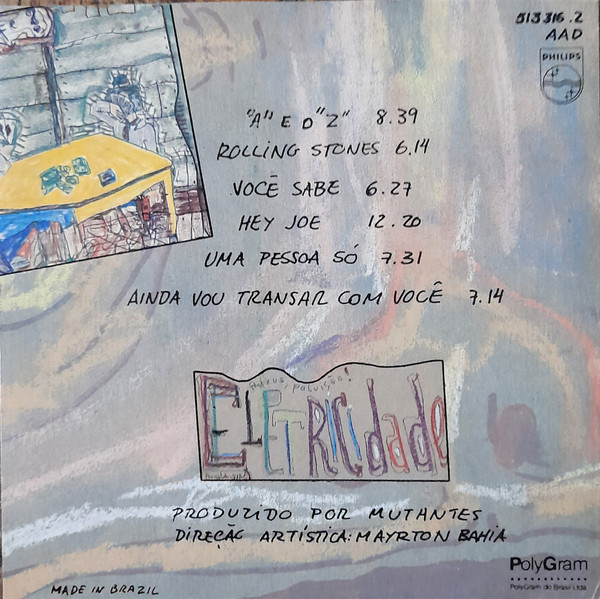 513316.2
AAD
PHILIPS
"A" E O "Z" 8.39
ROLLING STONES 6.14
VOCÊ SABE 6.27
HEY JOE 12.20
UMA PESSOA SÓ 7.31
AINDA VOU TRANSAR COM VOCÊ 7.14
Adeus, poluição!
ELETRICIdade
PRODUZIDO POR MUTANTES
DIREÇÃO ARTÍSTICA: MAYRTON BAHIA
PolyGram
PolyGram do Brasil Ltda.
MADE IN BRAZIL